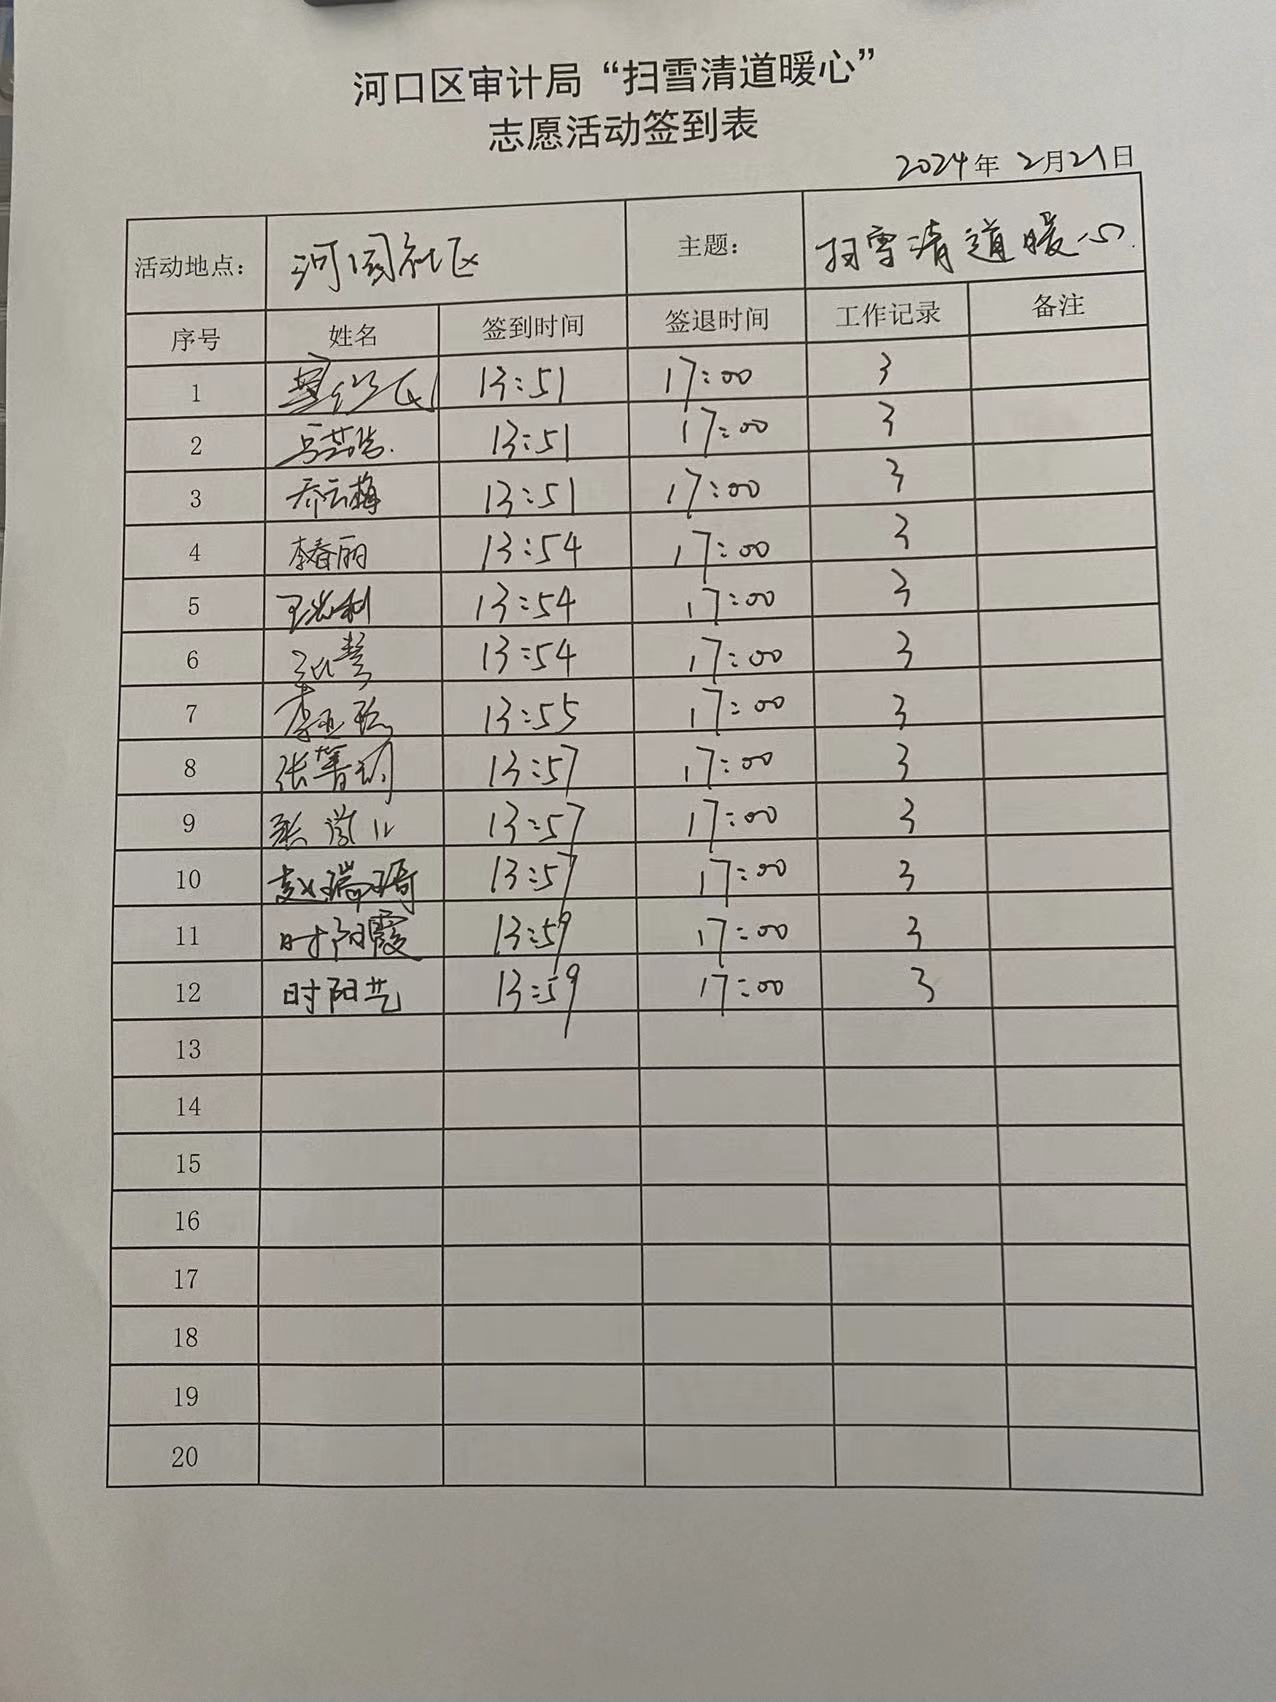 河口区审计局“扫雪清道暖心”
志愿活动签到表
2024年 2月21日
活动地点： 社区 主题： 扫雪清道暖心
序号 姓名 签到时间 签退时间 工作记录 备注
1 13:51 17:00 3
2 13:51 17:00 3
3 乔云梅 13:51 17:00 3
4 李春丽 13:54 17:00 3
5 13:54 17:00 3
6 13:54 17:00 3
7 13:55 17:00 3
8 13:57 17:00 3
9 13:57 17:00 3
10 赵瑞琦 13:57 17:00 3
11 时阳霞 13:59 17:00 3
12 时阳艺 13:59 17:00 3
13
14
15
16
17
18
19
20